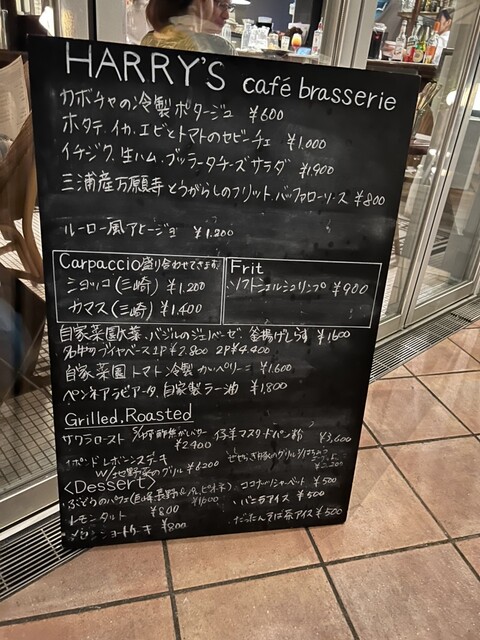 HARRY'S café brasserie
カボチャの冷製ポタージュ ¥600
ホタテ.イカ.エビとトマトのセビーチェ ¥1,000
イチジク.生ハム.ブッラータチーズサラダ ¥1,900
三浦産万願寺とうがらしのフリット.バッファローソース ¥800
ルーロー風アヒージョ ¥1,200
Carpaccio盛り合わせできます
ショッコ(三崎) ¥1,200
カマス(三崎) ¥1,400
Frit
ソフトシェルシュリンプ ¥900
自家菜園 バジルのジェノベーゼ.釜揚げしらす ¥1600
ブイヤベース 1P ¥2.800 2P ¥4.400
自家菜園トマト冷製カッペリーニ ¥1.600
ペンネアラビアータ.自家製ラー油 ¥1,800
Grilled.Roasted
サクラロースト 焦がしバター ¥2,900
仔羊マスタードパン粉 ¥3,600
1ポンドLボーンステーキ
w/地野菜のグリル ¥6200
¥2.200
<Dessert>
ぶどうのパフェ ¥1,600
レモンタルト ¥800
メロンショートケーキ ¥800
ココナッツシャーベット ¥500
バニラアイス ¥500
だったんそば茶アイス ¥500